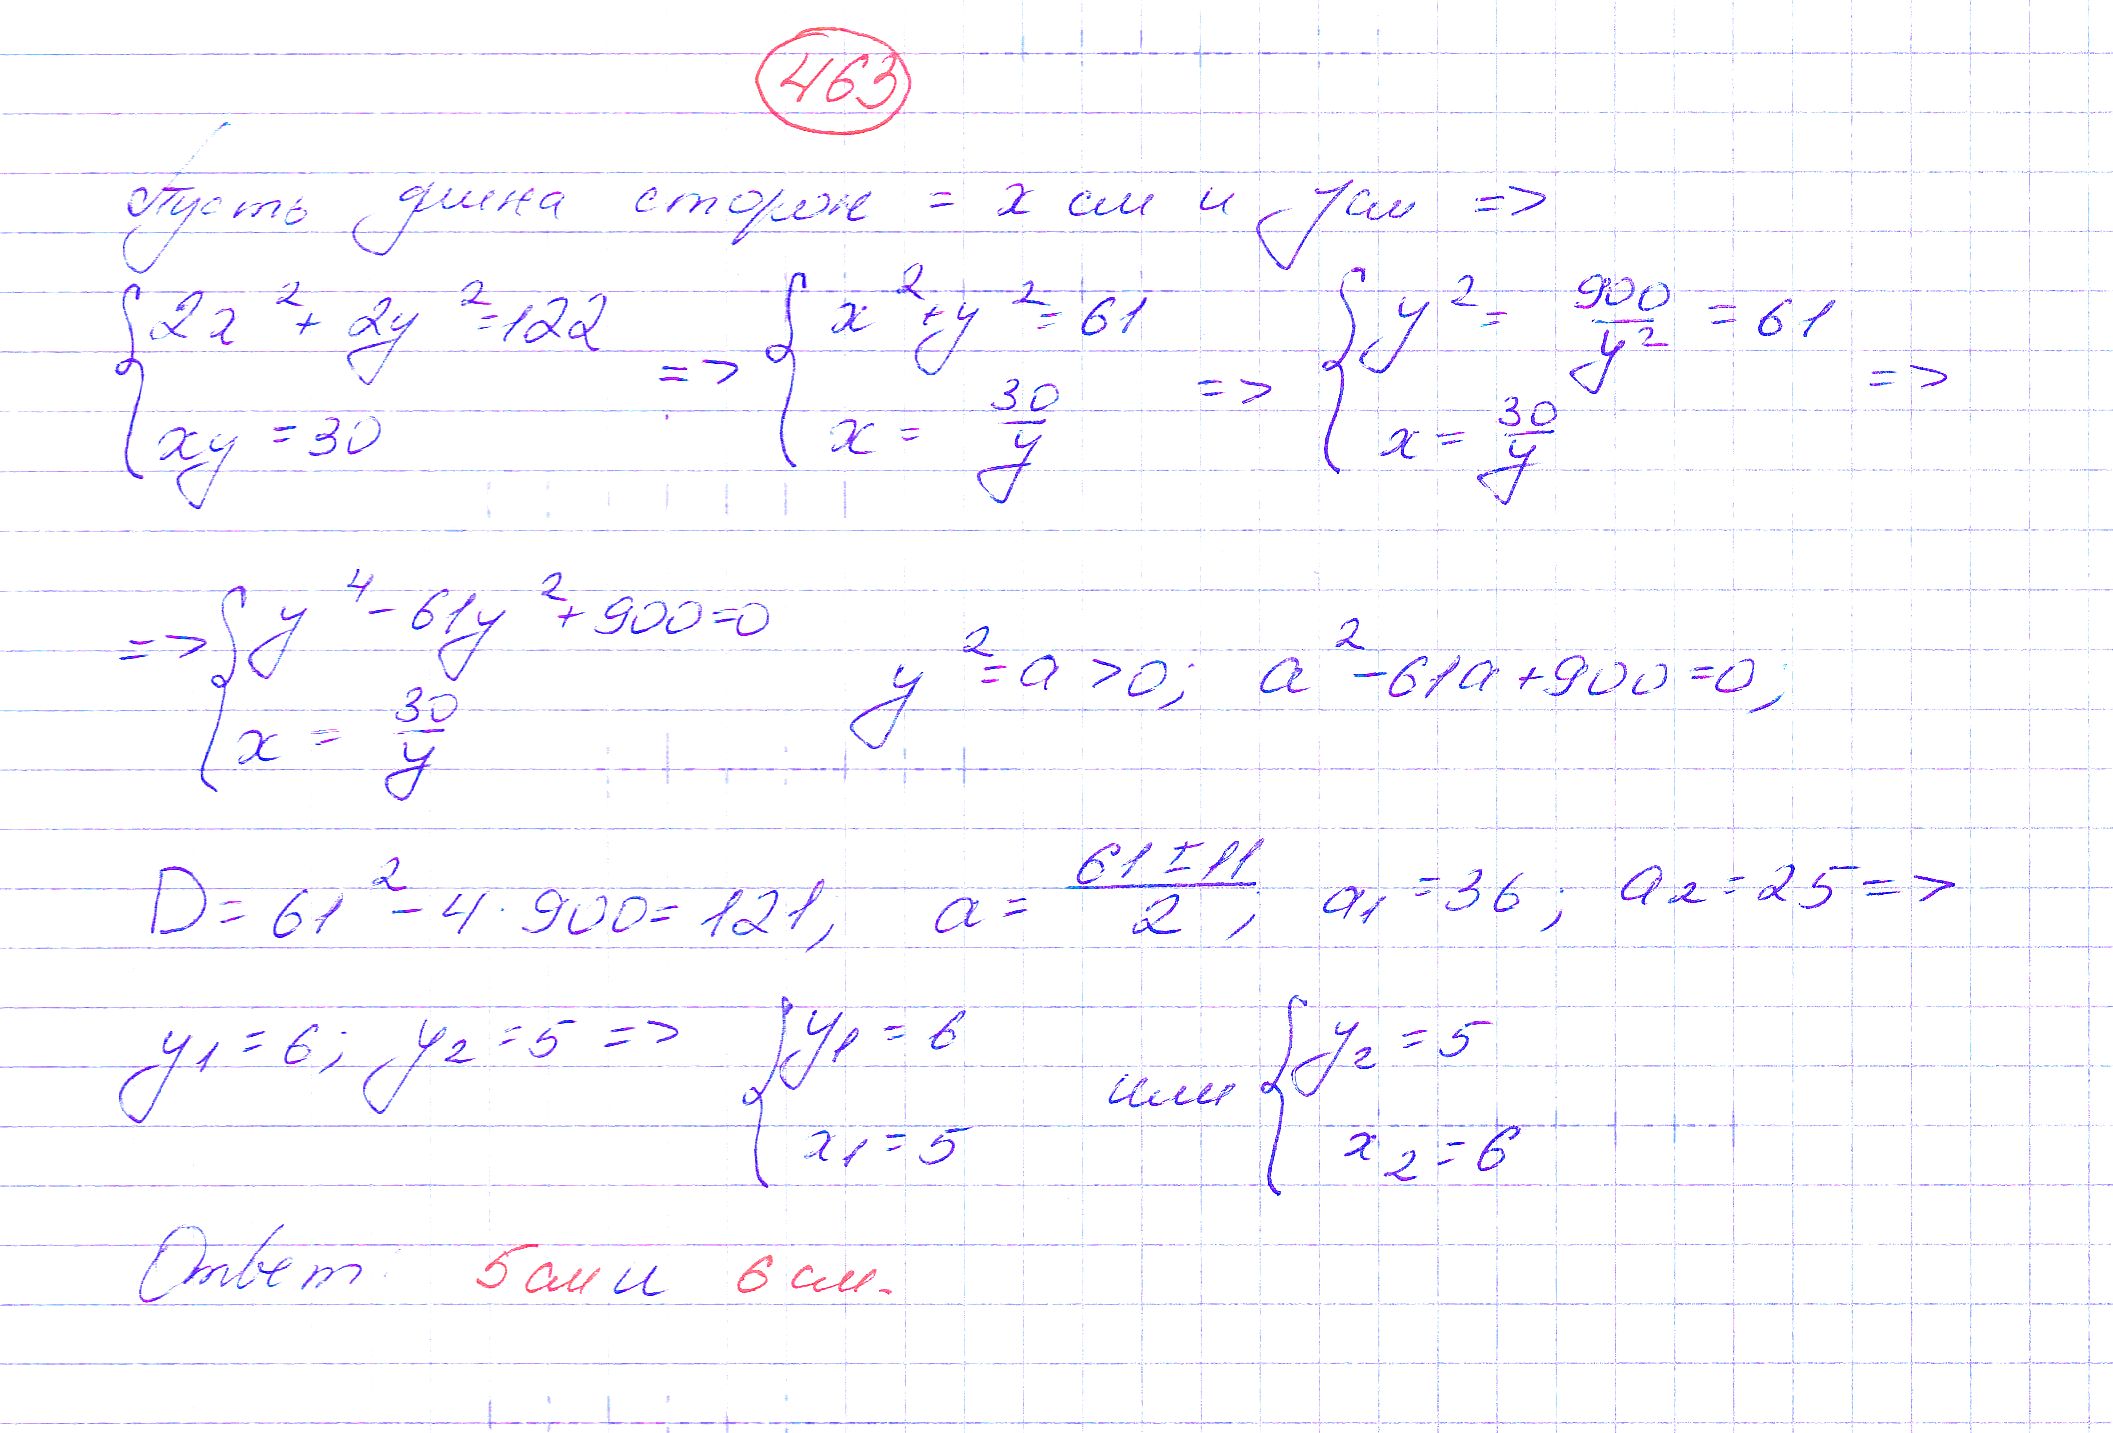 463
Пусть длина сторон = x см и y см =>
{ 2x² + 2y² = 122 ; xy = 30 => { x² + y² = 61 ; x = 30/y => { y² = 900/y² = 61 ; x = 30/y =>
=> { y⁴ - 61y² + 900 = 0 ; x = 30/y y² = a > 0; a² - 61a + 900 = 0;
D = 61² - 4 · 900 = 121, a = (61 ± 11)/2; a₁ = 36; a₂ = 25 =>
y₁ = 6; y₂ = 5 => { y₁ = 6 ; x₁ = 5 или { y₂ = 5 ; x₂ = 6
Ответ: 5 см и 6 см.